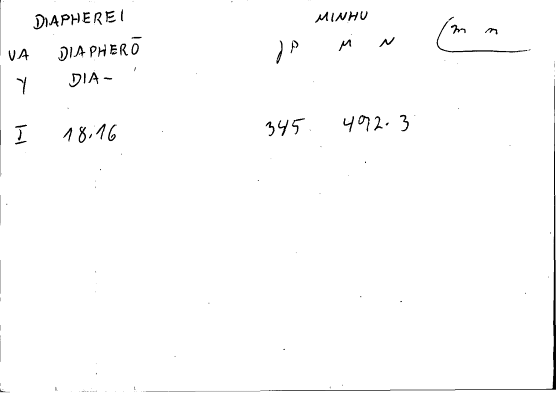 DIAPHEREI MINHU
VA DIAPHERŌ JP M N m n
Y DIA-
I 18.16 345 492.3